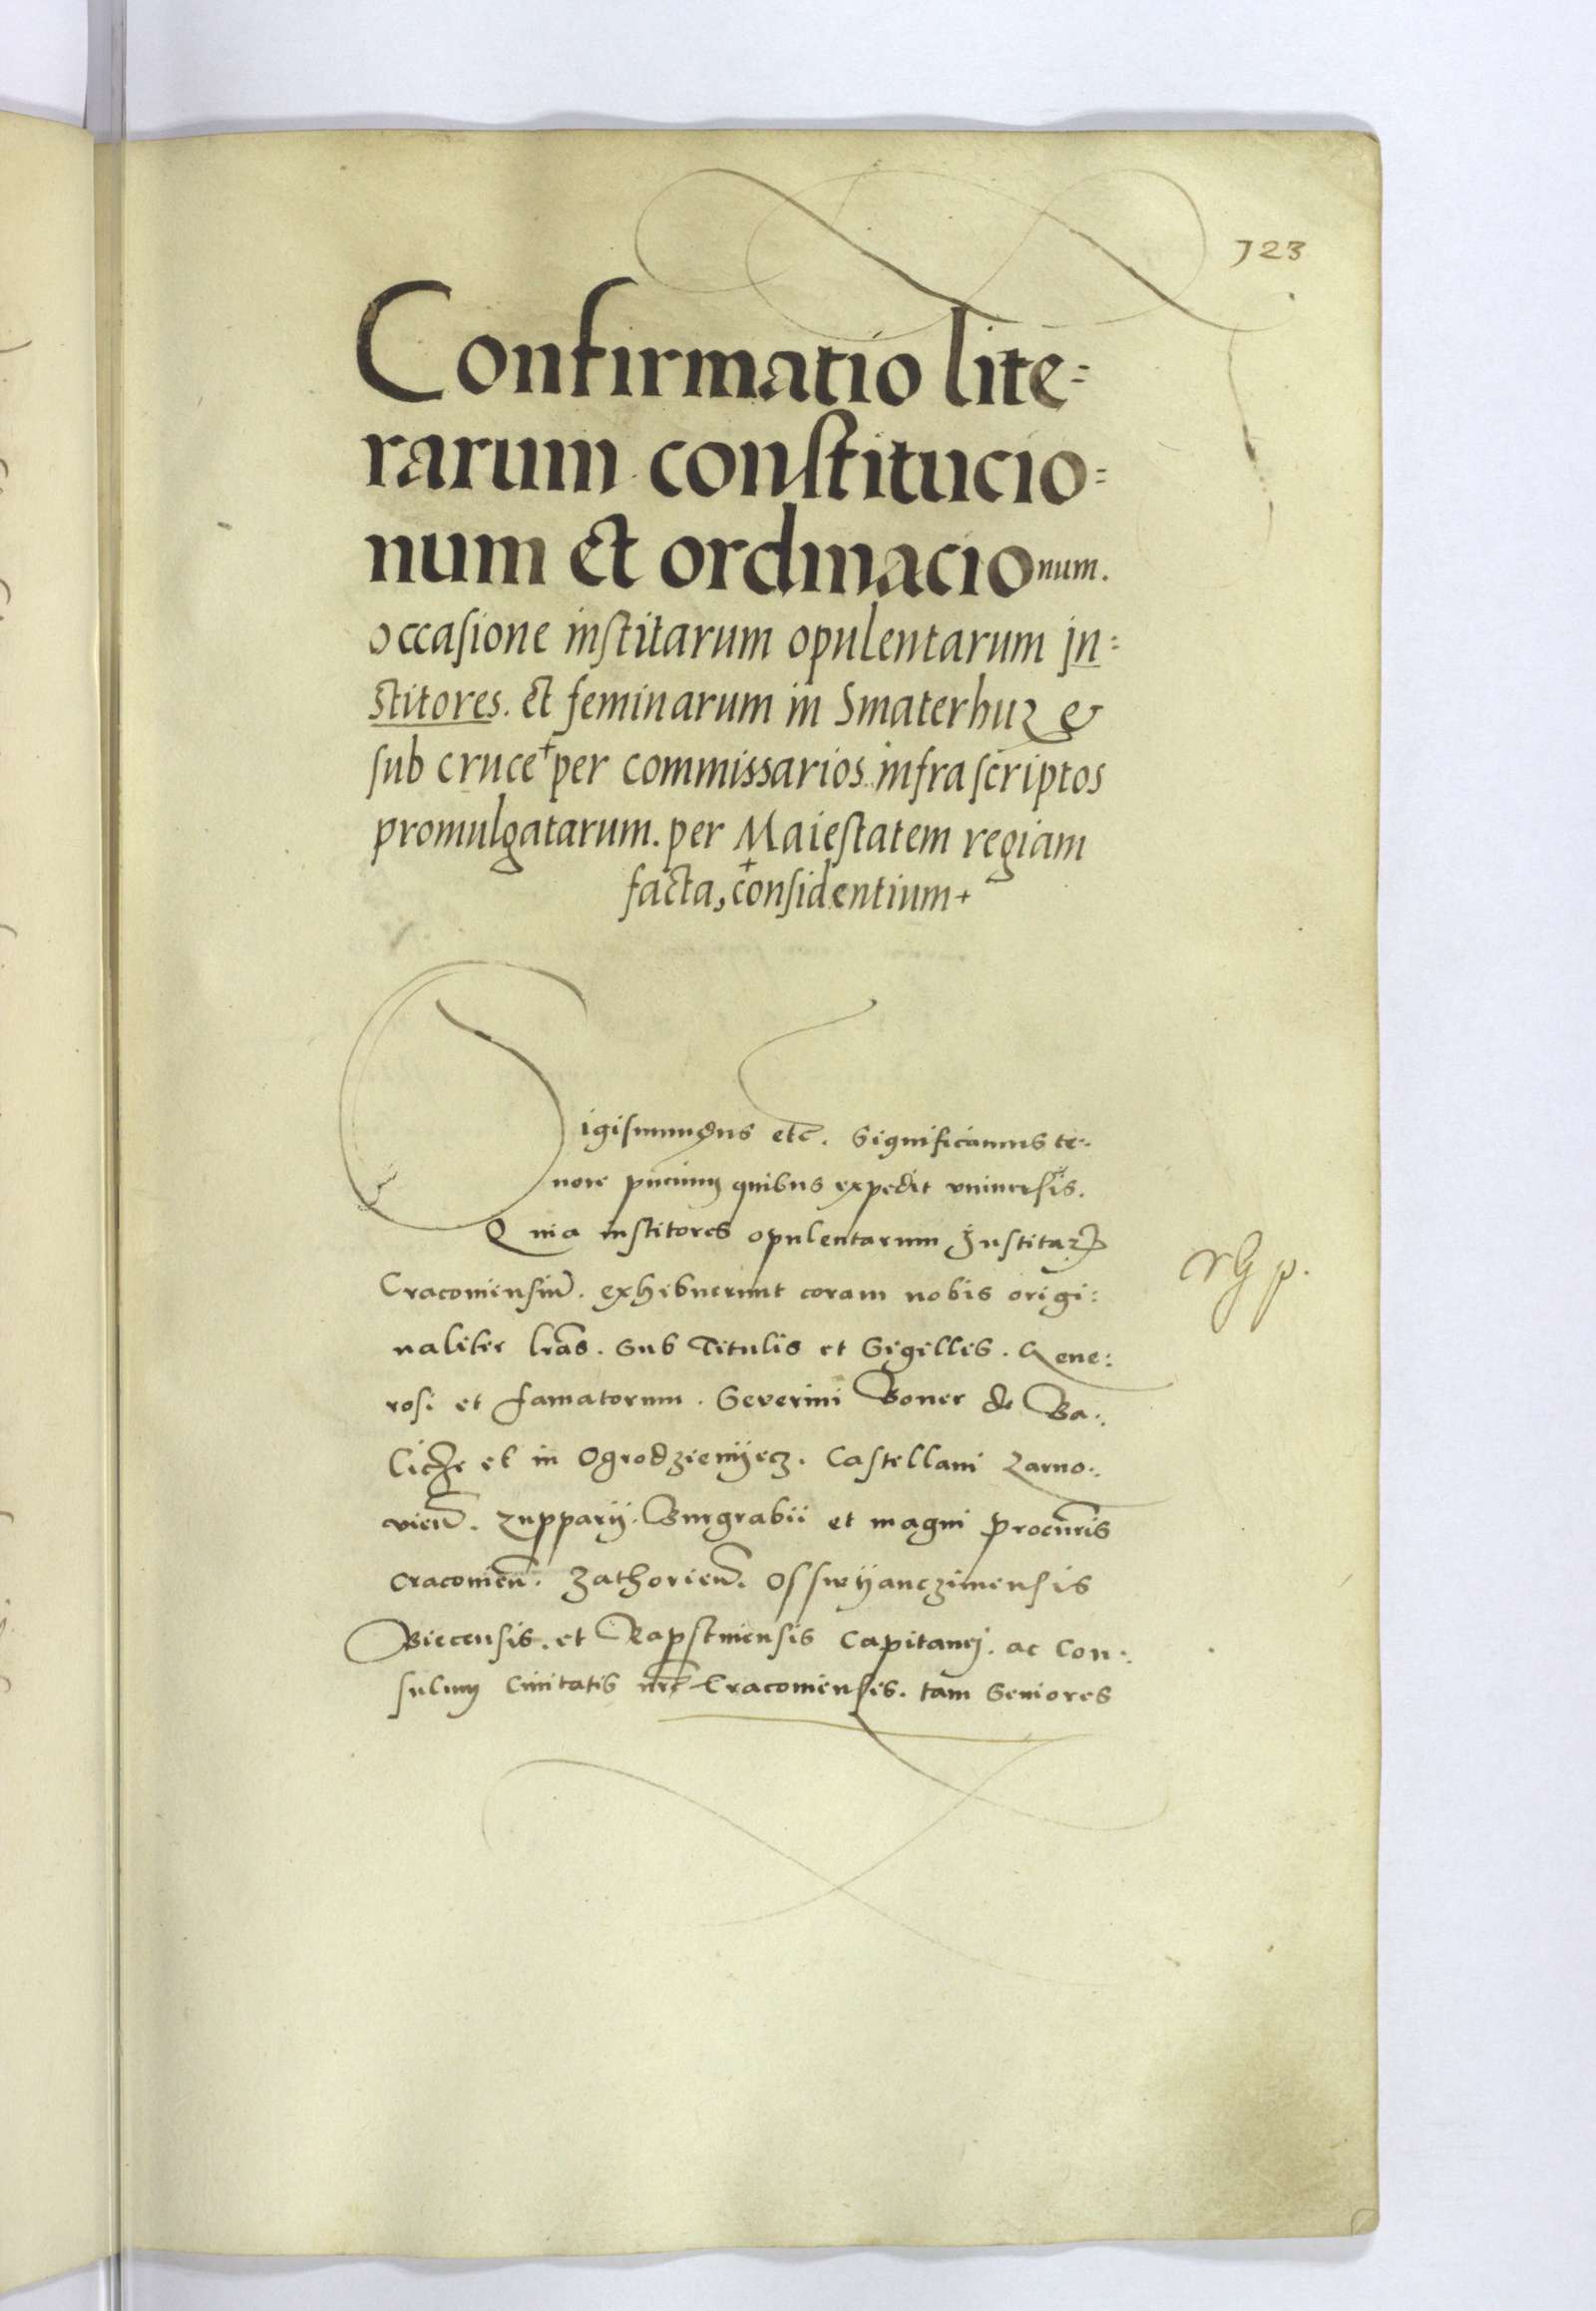 123
Confirmatio lite=
rarum constitucio=
num et ordinacionum.
occasione institarum opulentarum in=
stitores. et feminarum in Smaterhuz &
sub cruce + per commissarios infrascriptos
promulgatarum. per Maiestatem regiam
facta, + considentium +
Sigismundus etc. Significamus te=
nore pñcium quibus expedit vniversis.
Quia institores opulentarum Institarꝝ
Cracoviensiũ. exhibuerunt coram nobis origi:
naliter lr̃as. sub Titulis et Sigillis. Gene:
rosi et famatorum. Severini Boner de Ba:
licze et in Ogrodzienijecz. Castellani Zarno:
vieñ. Zupparij. Burgrabii et magni procur̃is
Cracovieñ. Zathorieñ. Osswijanczimensis
Biecensis. et Rapstinensis Capitanej. ac Con:
sulum Civitatis nr̃e Cracoviensis. tam Seniores